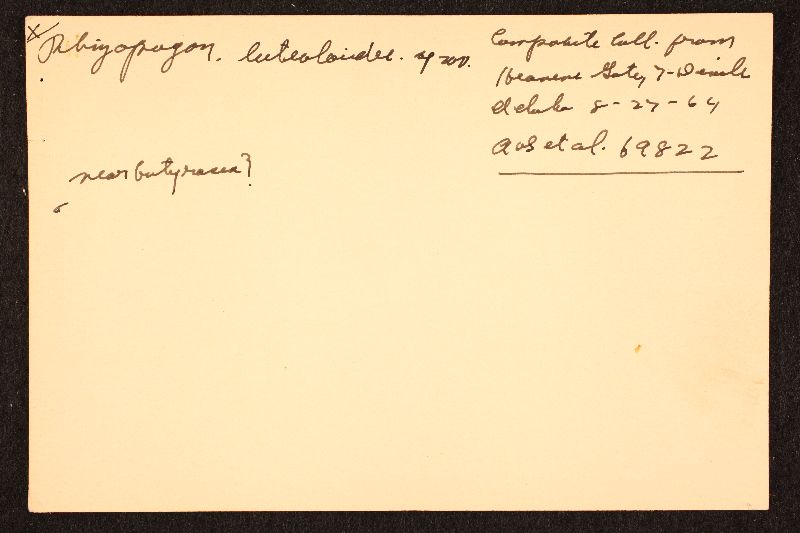 X
Rhizopogon. luteoloides. sp nov.
Composite Coll. from
Heavens Gate, 7-Devils
Idaho 8-27-64
AHS et al. 69822
near butyracea?